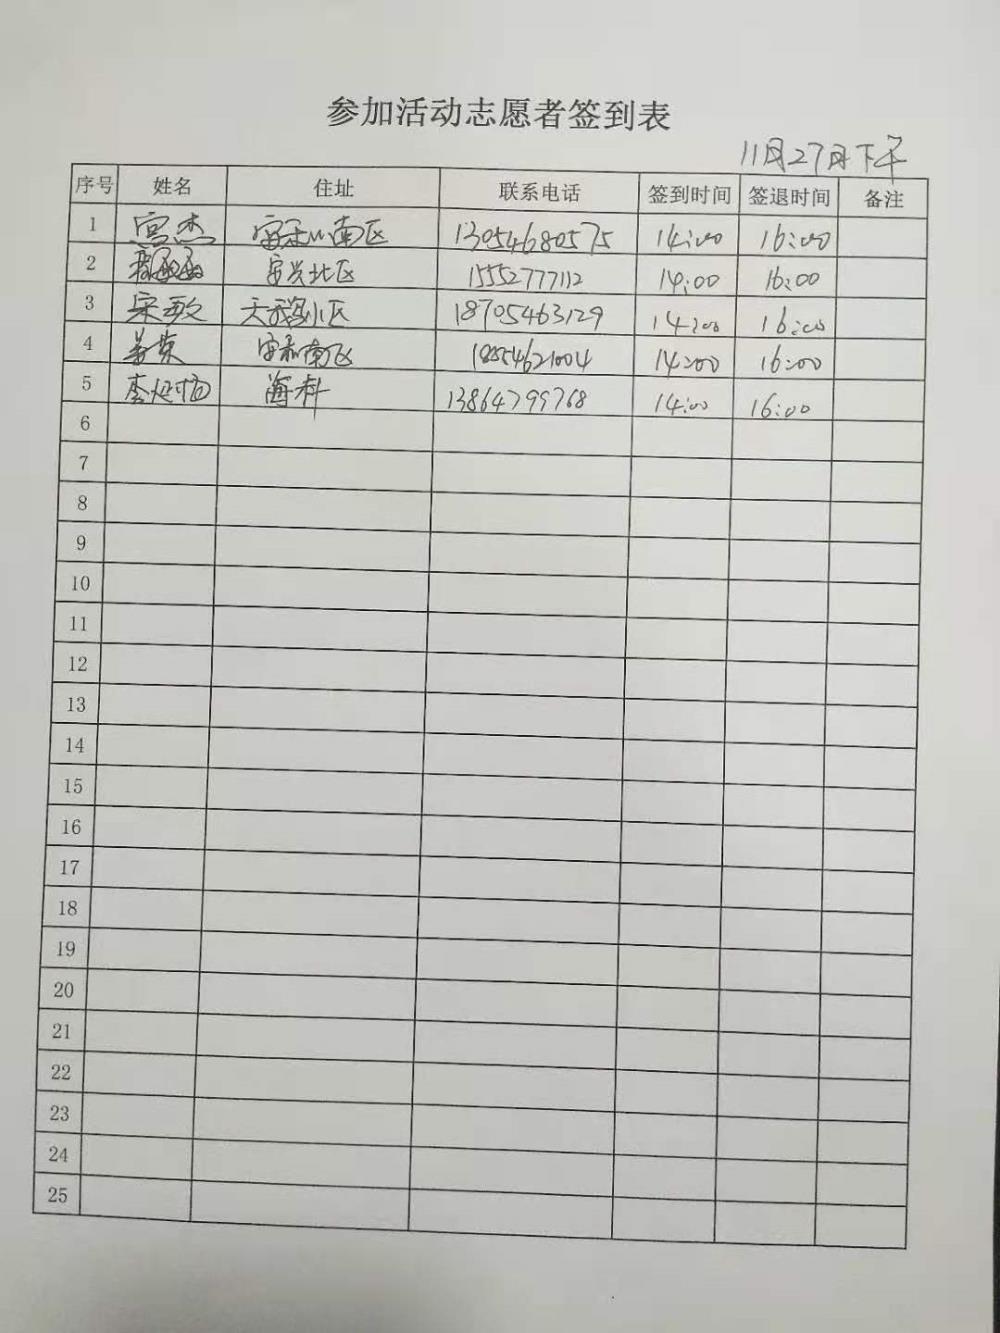 参加活动志愿者签到表
11月27日下午
序号 姓名 住址 联系电话 签到时间 签退时间 备注
1 宫杰 安禾小南区 13054680575 14:00 16:00
2 安兴北区 15552777112 14:00 16:00
3 宋敏 天鹅小区 18705463129 14:00 16:00
4 安和南区 14:00 16:00
5 李延梅 海科 13864799768 14:00 16:00
6
7
8
9
10
11
12
13
14
15
16
17
18
19
20
21
22
23
24
25